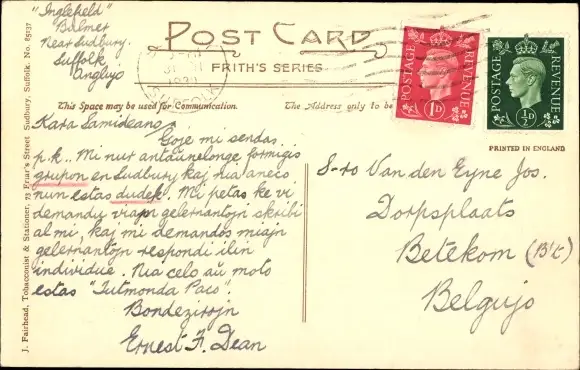 "Inglefield"
Bulmer
Near Sudbury.
Suffolk
Anglujo
POST CARD
FRITH'S SERIES
SUFFOLK
POSTAGE REVENUE
1D
POSTAGE REVENUE
½D
This Space may be used for Communication.
The Address only to be
PRINTED IN ENGLAND
J. Fairhead, Tobacconist & Stationer, 73 Friar's Street Sudbury, Suffolk. No. 85137
Kara Samideano,
Ĝoje mi sendas
p.k.. Mi nur antaŭnelonge formigis
grupon en Sudbury kaj nia aneco
nun estas dudek. Mi petas ke vi
demandu viajn gelernantojn skribi
al mi, kaj mi demandos miajn
gelernantojn respondi ilin
individue. Nia celo aŭ moto
estas "Tutmonda Paco".
Bondezirojn
Ernest F. Dean
S-ro Van den Eyne Jos.
Dorpsplaats
Betekom (B't)
Belgujo